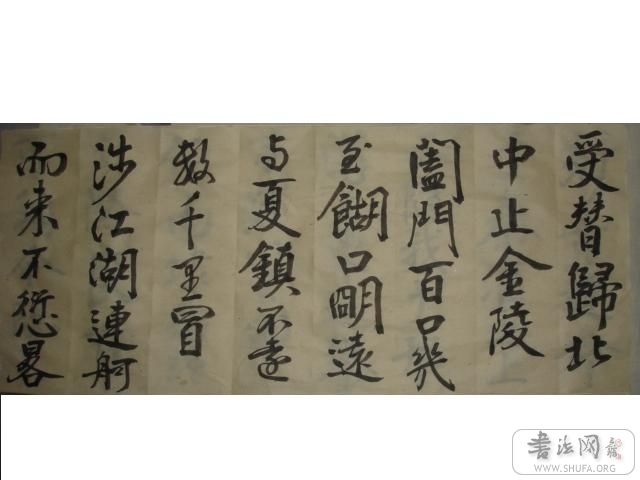 受替歸北
中止金陵
闔門百口幾
至餬口明遠
与夏鎮不遠
数千里冒
涉江湖連舸
而来不愆晷
書法网
WWW.SHUFA.ORG